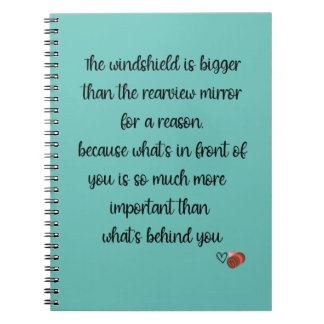 the windshield is bigger
than the rearview mirror
for a reason,
because what's in front of
you is so much more
important than
what's behind you